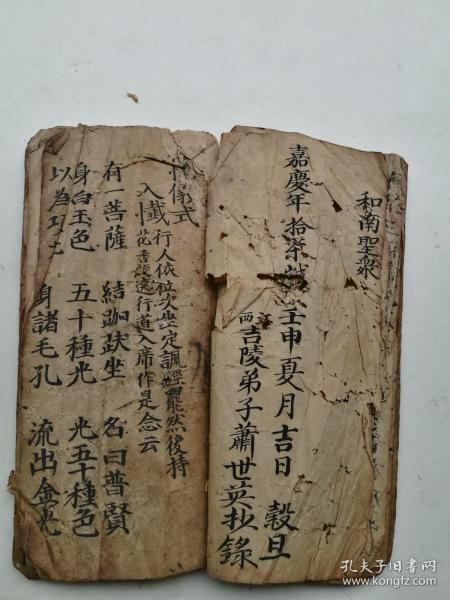 和南聖衆
嘉慶年拾柒歲壬申夏月吉日 穀旦
江西吉陵弟子蕭世英抄錄
儀式
入懺
行人依位次坐定諷經罷然後持
花香旋遶行道入席作是念云
有一菩薩 結跏趺坐 名曰普賢
身白玉色 五十種光 光五十種色
以為 身諸毛孔 流出金光
孔夫子旧书网
www.kongfz.com